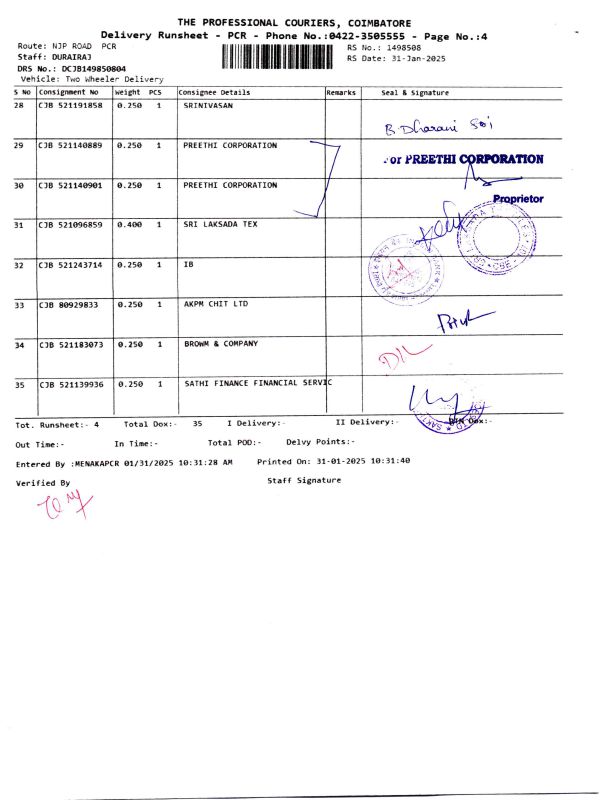 THE PROFESSIONAL COURIERS, COIMBATORE
Delivery Runsheet - PCR - Phone No.:0422-3505555 - Page No.:4
Route: NJP ROAD PCR RS No.: 1498508
Staff: DURAIRAJ RS Date: 31-Jan-2025
DRS No.: DCJB149850804
Vehicle: Two Wheeler Delivery
S No Consignment No Weight PCS Consignee Details Remarks Seal & Signature
28 CJB 521191858 0.250 1 SRINIVASAN
B Dharani
29 CJB 521140889 0.250 1 PREETHI CORPORATION
For PREETHI CORPORATION
30 CJB 521140901 0.250 1 PREETHI CORPORATION
Proprietor
31 CJB 521096859 0.400 1 SRI LAKSADA TEX
32 CJB 521243714 0.250 1 IB
33 CJB 80929833 0.250 1 AKPM CHIT LTD
34 CJB 521183073 0.250 1 BROWM & COMPANY
35 CJB 521139936 0.250 1 SATHI FINANCE FINANCIAL SERVIC
Tot. Runsheet:- 4 Total Dox:- 35 I Delivery:- II Delivery:- Dox:-
Out Time:- In Time:- Total POD:- Delvy Points:-
Entered By :MENAKAPCR 01/31/2025 10:31:28 AM Printed On: 31-01-2025 10:31:40
Verified By Staff Signature